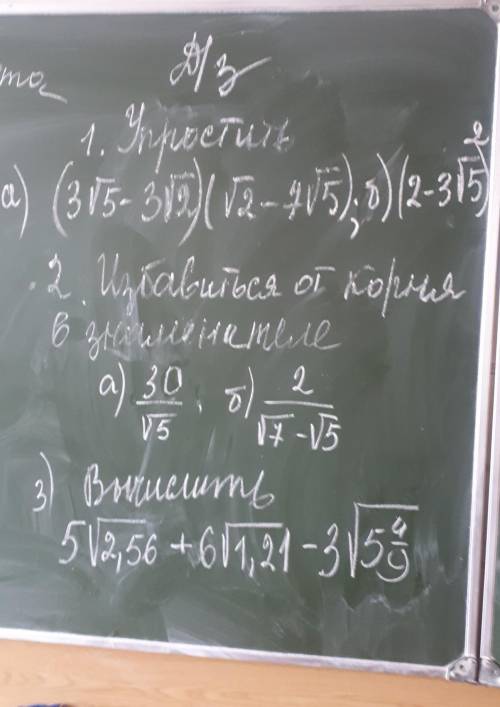 Д/з
1. Упростить
а) (3√5 - 3√2)(√2 - 7√5); б) (2 - 3√5)²
2. Избавиться от корня
в знаменателе
а) 30/√5, б) 2/(√7 - √5)
3) Вычислить
5√2,56 + 6√1,21 - 3√(5 4/9)